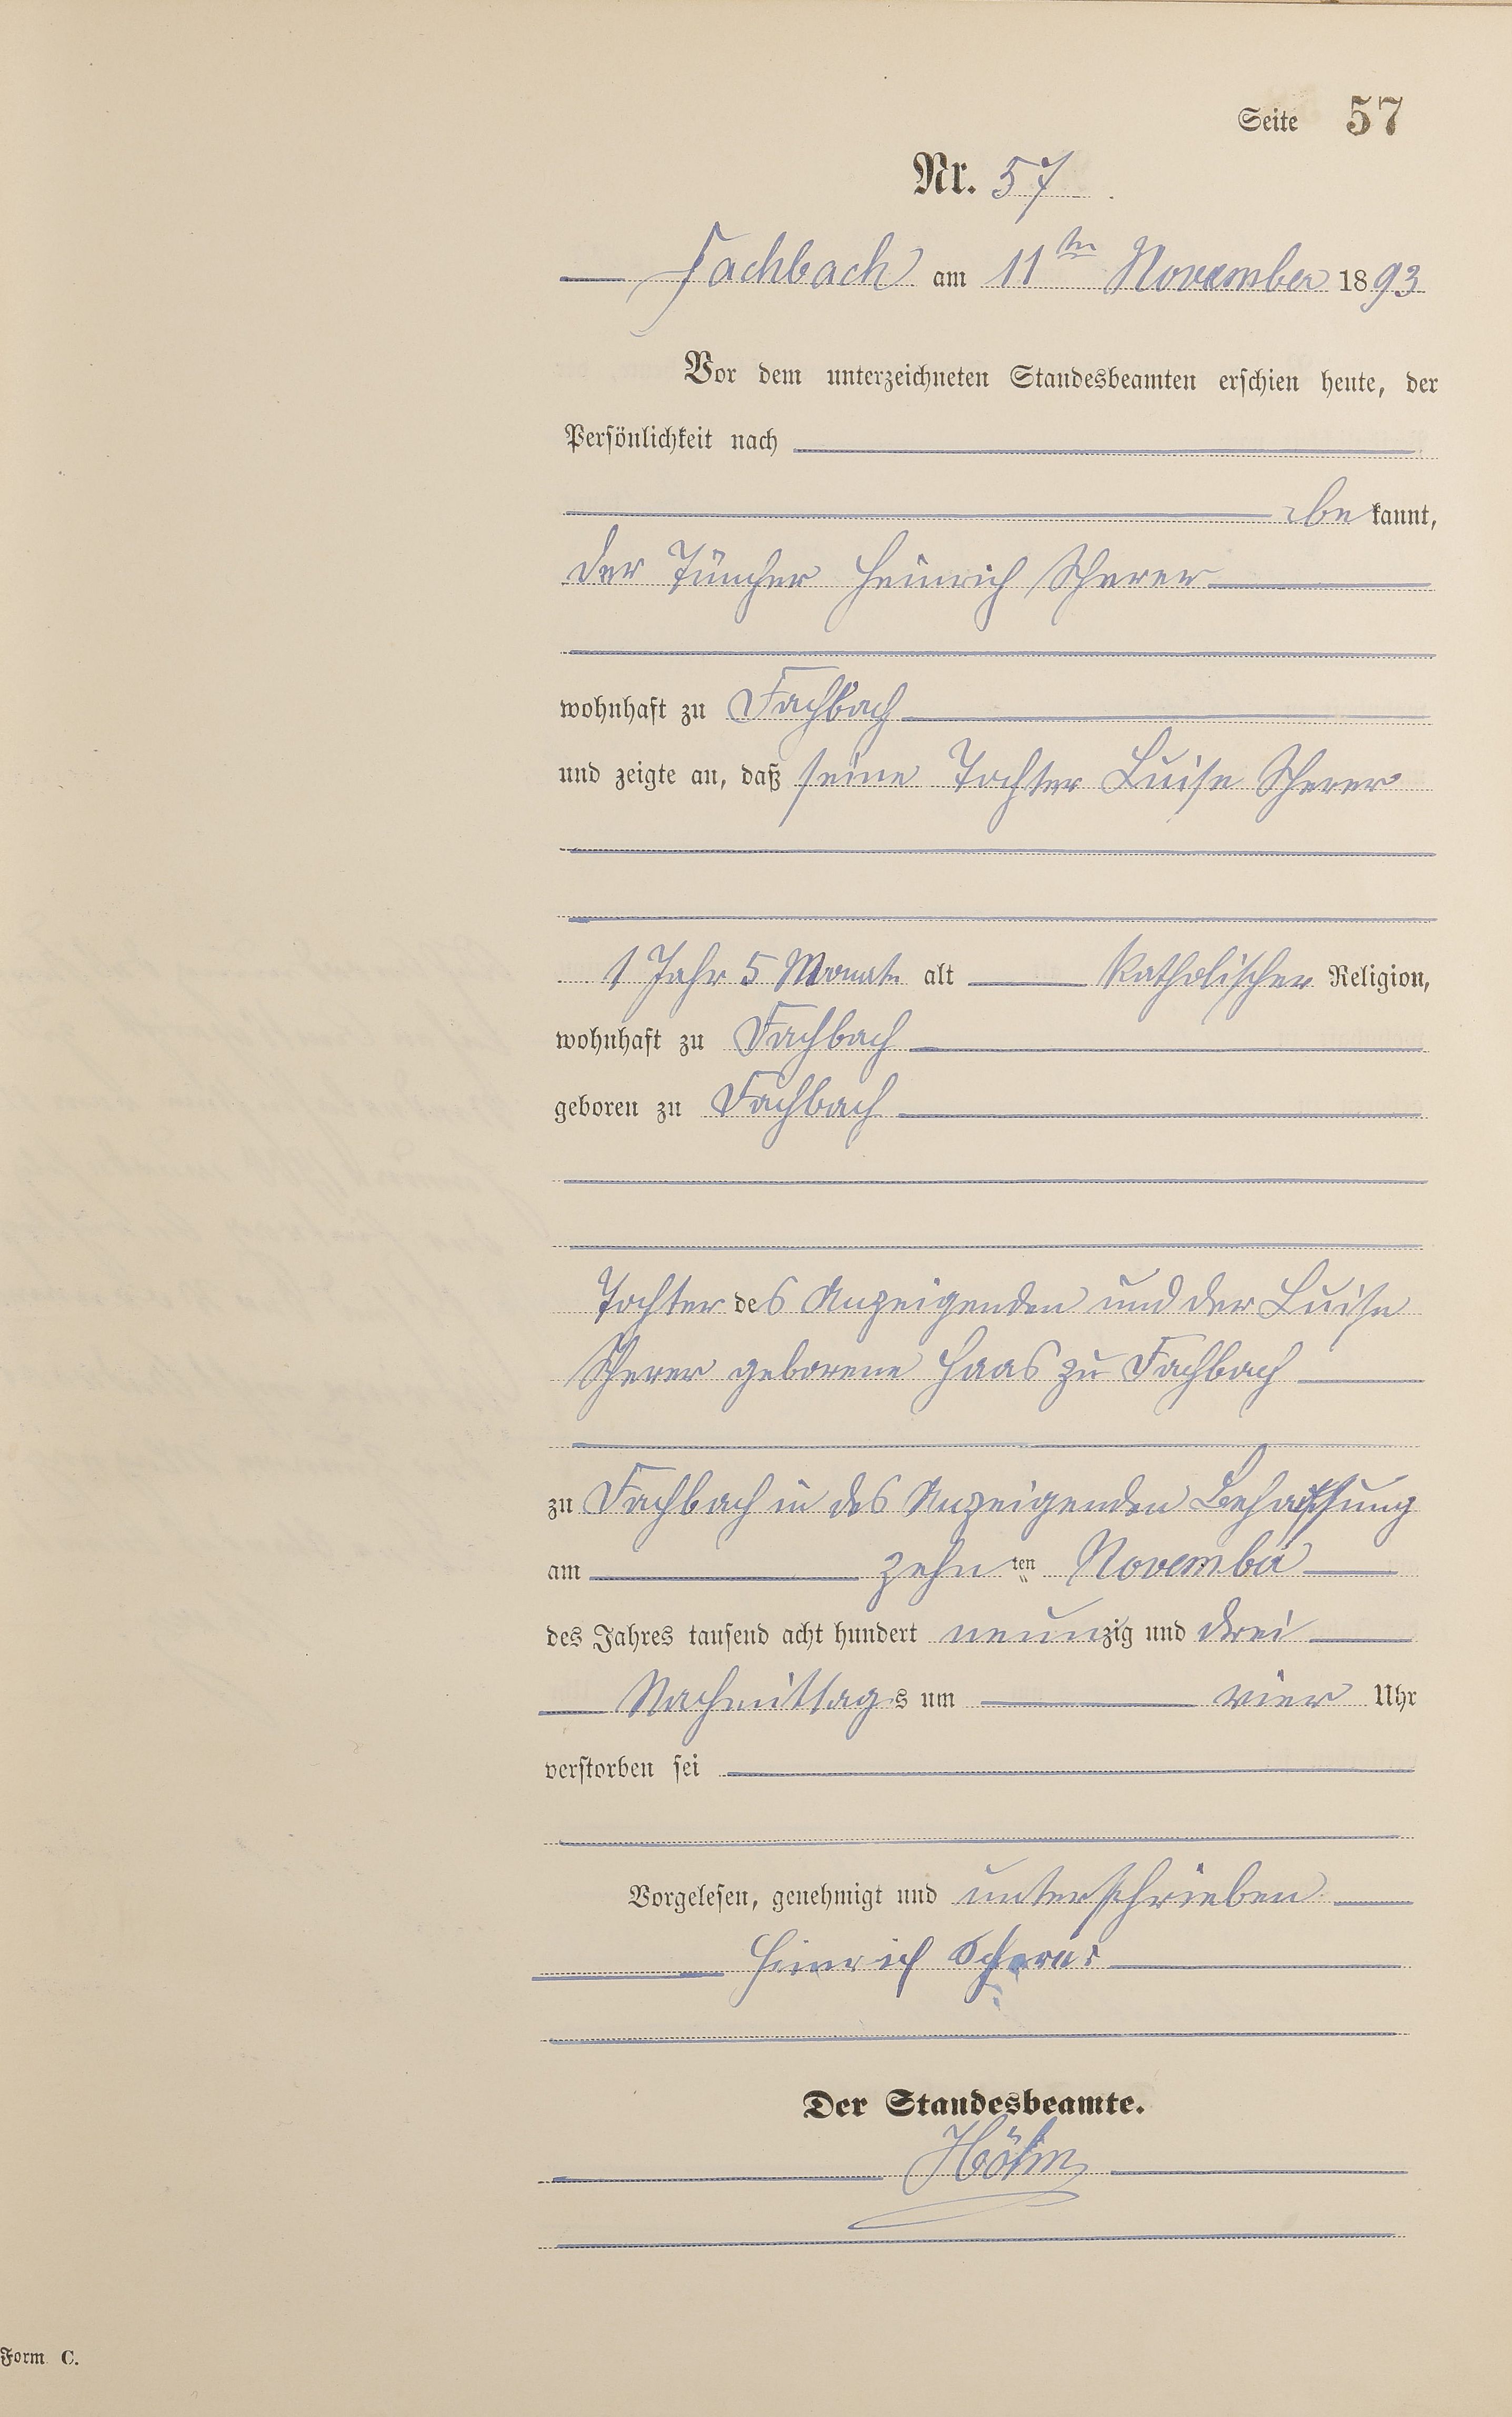 Seite 57
Nr. 57
Fachbach am 11ten November 1893
Vor dem unterzeichneten Standesbeamten erschien heute, der
Persönlichkeit nach
bekannt,
der Tüncher Heinrich Scherer
wohnhaft zu Fachbach
und zeigte an, daß seine Tochter Luise Scherer
1 Jahr 5 Monate alt katholischer Religion,
wohnhaft zu Fachbach
geboren zu Fachbach
Tochter des Anzeigenden und der Luise
Scherer geborene Haas zu Fachbach
zu Fachbach in des Anzeigenden Behausung
am zehnten November
des Jahres tausend acht hundert neunzig und drei
Nachmittags um vier Uhr
verstorben sei
Vorgelesen, genehmigt und unterschrieben
Heinrich Scherer
Der Standesbeamte.
Höhn
Form C.